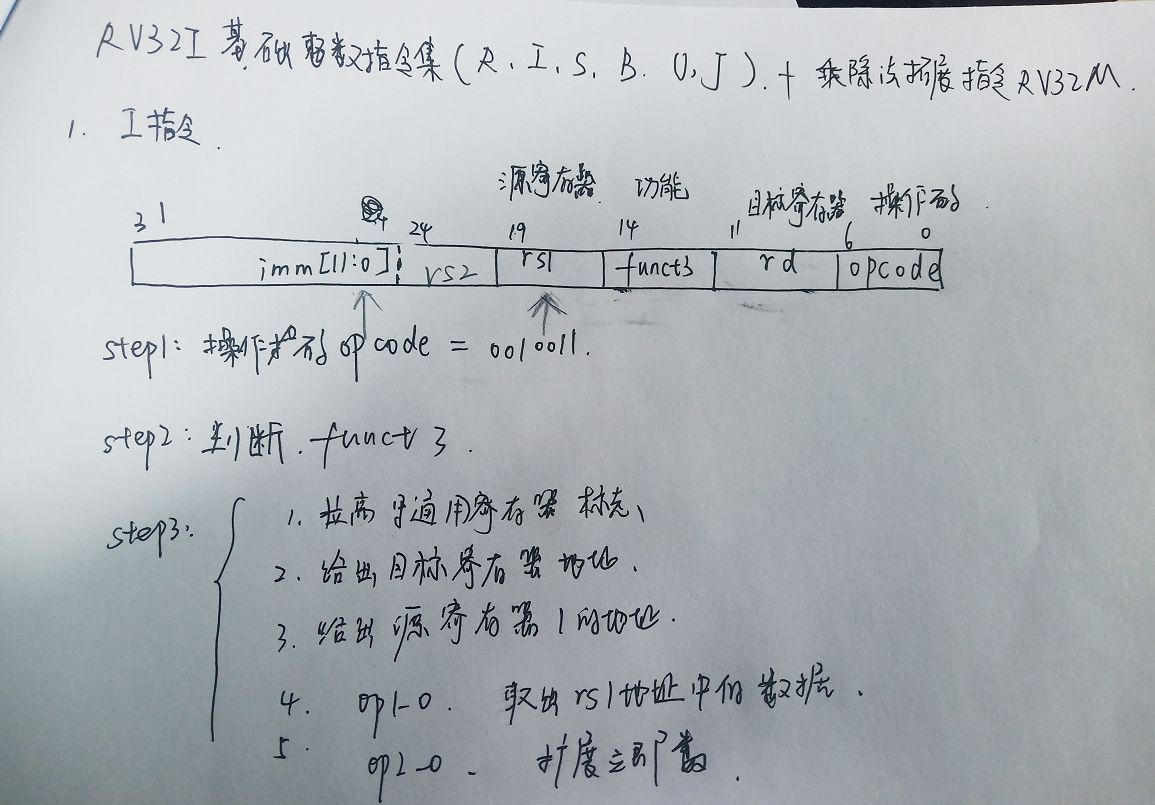 RV32I 基础整数指令集(R、I、S、B、U、J).+ 乘除法拓展指令RV32M.
1. I指令.
源寄存器 功能 目标寄存器 操作码.
31 24 19 14 11 6 0
imm[11:0] rs2 rs1 funct3 rd opcode
step1: 操作码opcode = 0010011.
step2: 判断.funct3.
step3: 1. 拉高写通用寄存器标志、
2. 给出目标寄存器地址.
3. 给出源寄存器1的地址.
4. op1_0. 取出rs1地址中的数据.
5. op2_0. 扩展立即数.